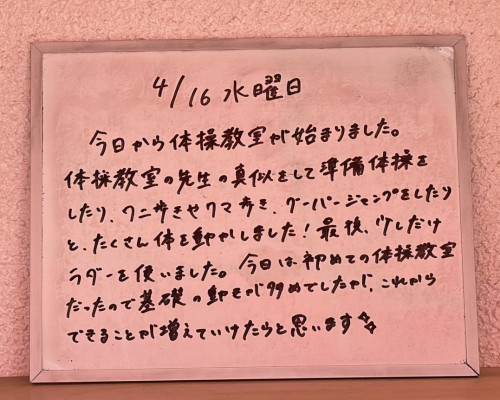 4/16 水曜日
今日から体操教室が始まりました。
体操教室の先生の真似をして準備体操を
したり、ワニ歩きやクマ歩き、グーパージャンプをしたり
と、たくさん体を動かしました！最後、少しだけ
ラダーを使いました。今日は初めての体操教室
だったので基礎の動きが多めでしたが、これから
できることが増えていけたらと思います✨